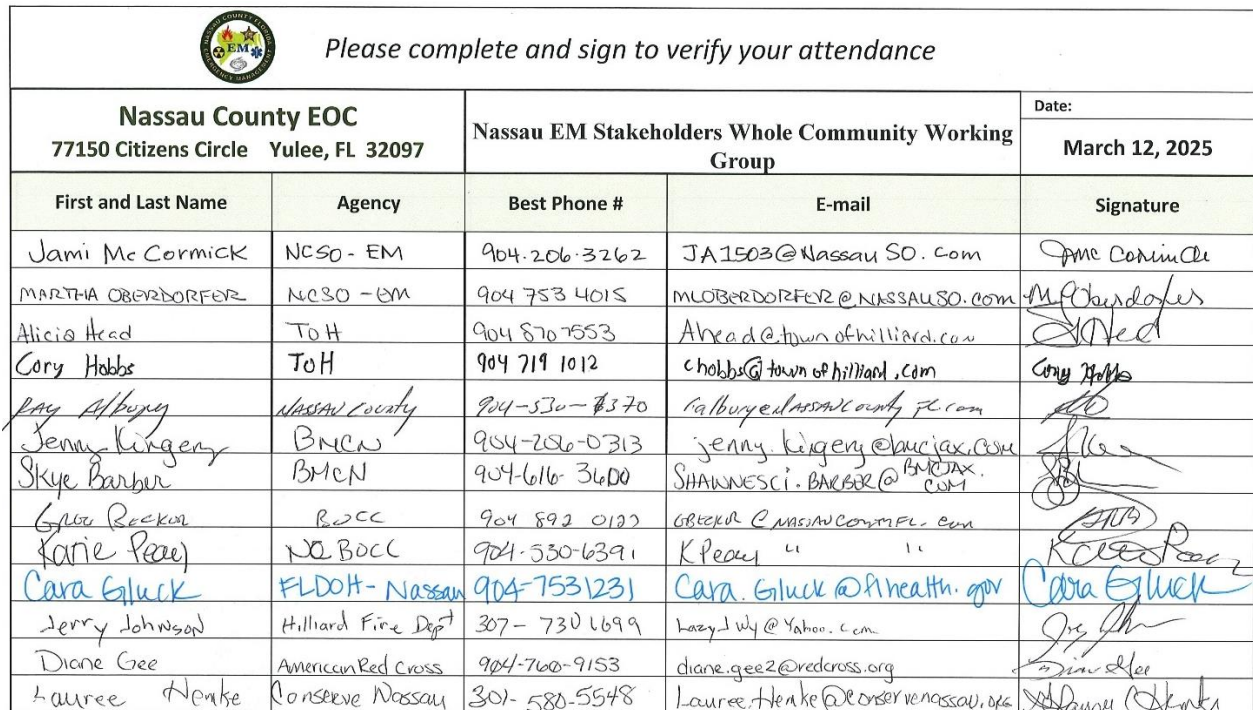 NASSAU COUNTY FLORIDA
EM
EMERGENCY MANAGEMENT
Please complete and sign to verify your attendance
Nassau County EOC
77150 Citizens Circle Yulee, FL 32097
Nassau EM Stakeholders Whole Community Working
Group
Date:
March 12, 2025
First and Last Name Agency Best Phone # E-mail Signature
Jami McCormick NCSO-EM 904.206.3262 JA1503@NassauSO.com
MARTHA OBERDORFER NCSO-EM 904 753 4015 MLOBERDORFER@NASSAUSO.com
Alicia Head TOH 904 870 7553 Ahead@townofhilliard.com
Cory Hobbs TOH 904 719 1012 chobbs@townofhilliard.com Cory Hobbs
RAY Albury NASSAU County ralbury@NASSAUCountyFL.com
Jenny Kingery BMCN 904-206-0313 jenny.kingery@bmcjax.com
Skye Barber BMCN 904-616-3600 SHAWNESCI.BARBER@BMCJAX.COM
BOCC 904 892
Karie Peay NC BOCC 904-530-6391 KPeay " "
Cara Gluck FLDOH-Nassau 904-7531231 Cara.Gluck@flhealth.gov Cara Gluck
Jerry Johnson Hilliard Fire Dept 307-730 1699 LazyJWy@Yahoo.com
Diane Gee American Red Cross 904-760-9153 diane.gee2@redcross.org Diane Gee
Lauree Hemke Conserve Nassau 301-580-5548 Lauree.Hemke@conservenassau.org